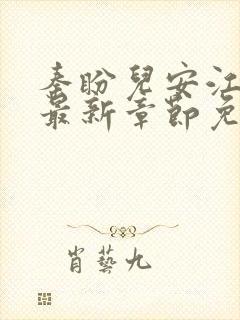 秦盼兒安江
最新章節免
肖藝九